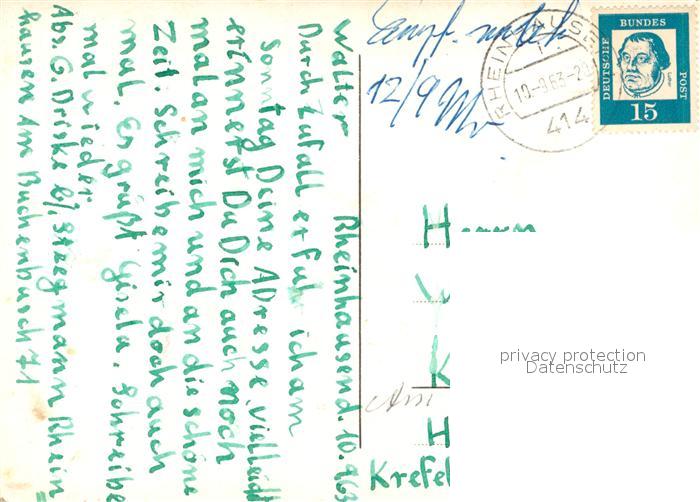 Rheinhausend. 10.963
Walter
Durch Zufall erfuhr ich am
Sonntag Deine ADresse, Vielleicht
erinnerst Du Dich auch noch
mal an mich und an die schöne
Zeit. Schreibe mir doch auch
mal. Er grüßt Gisela. Schreibe
mal wieder
Abs. G. Driske b/, Steegmann Rhein=
hausen Am Buchenbusch 71
12/9
RHEINHAUSE
10-9.63-20
414
DEUTSCHE BUNDES POST
15
H
K
Am
H
Krefel
privacy protection
Datenschutz